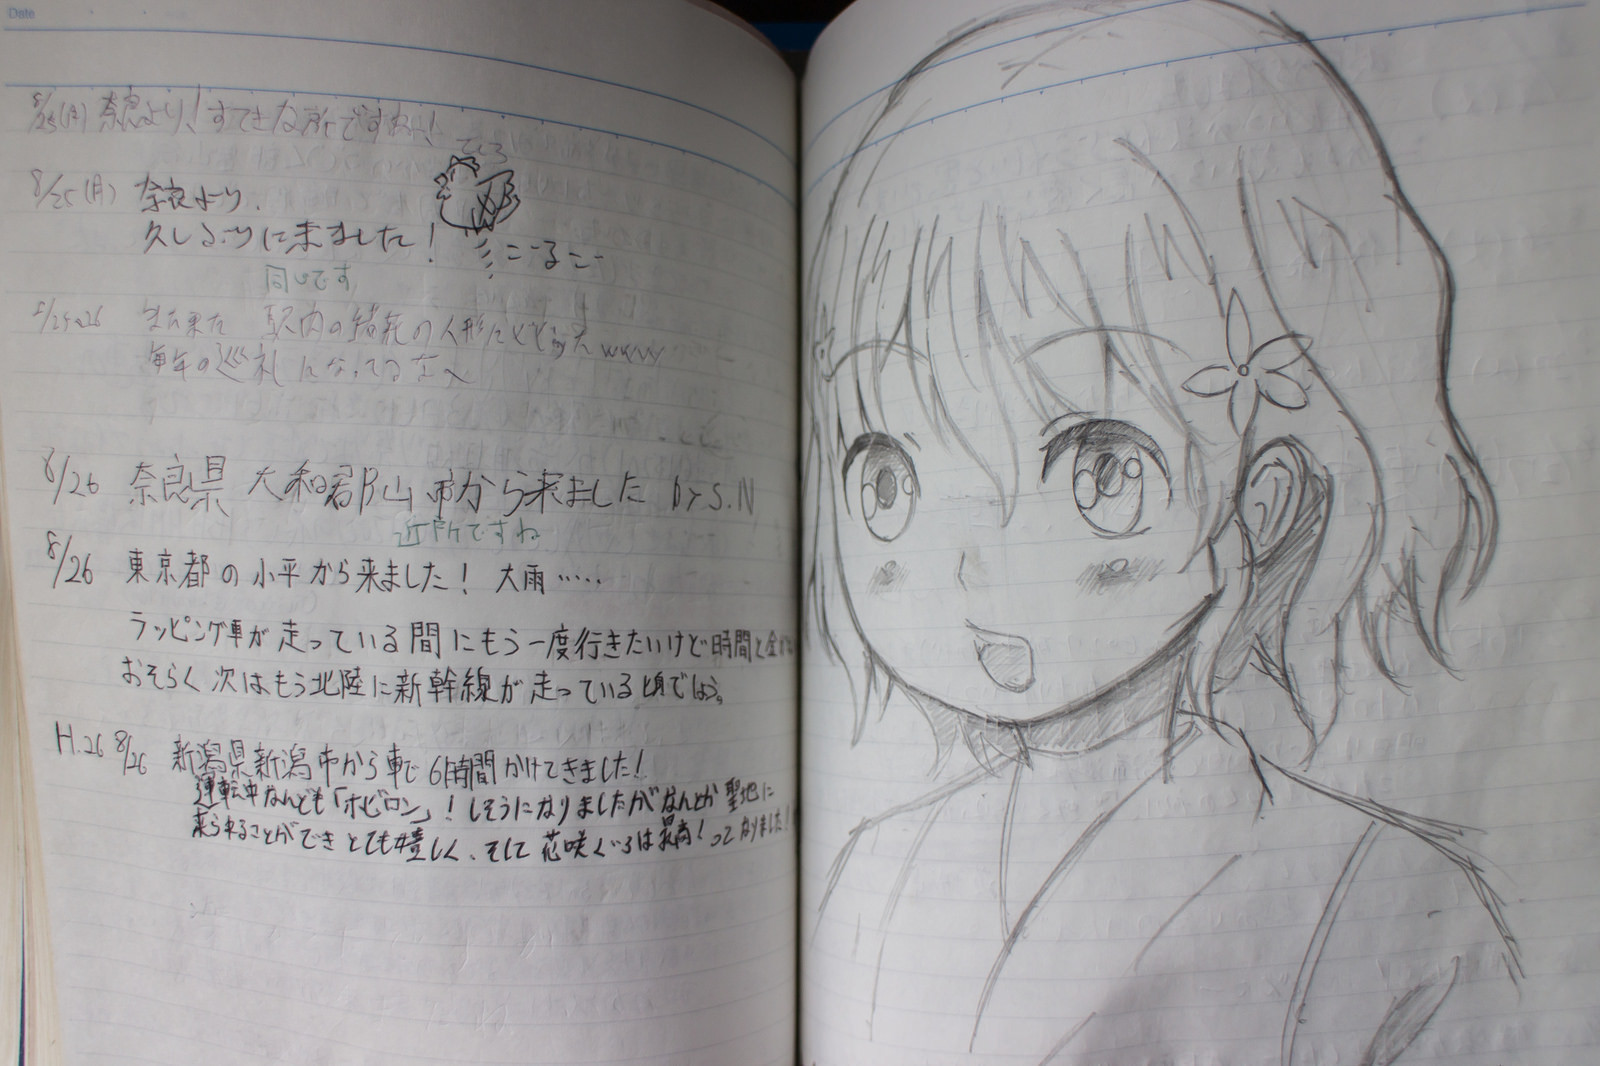 Date
8/25(月) 奈良より！すてきな所ですね！
8/25(月) 奈良より、
久しぶりに来ました！
同じです
8/25,26 また来た 駅内の緒花の人形にwwww
毎年の巡礼になってるなへ
8/26 奈良県 大和郡山市から来ました by S.N
近所ですね
8/26 東京都の小平から来ました！ 大雨……
ラッピング車が走っている間にもう一度行きたいけど時間と金が
おそらく次はもう北陸に新幹線が走っている頃でしょう。
H.26 8/26 新潟県新潟市から車で6時間かけてきました！
運転中なんども「ホビロン」！しそうになりましたがなんとか聖地に
来られることができとても嬉しく、そして花咲くいろは最高！ってなりました！